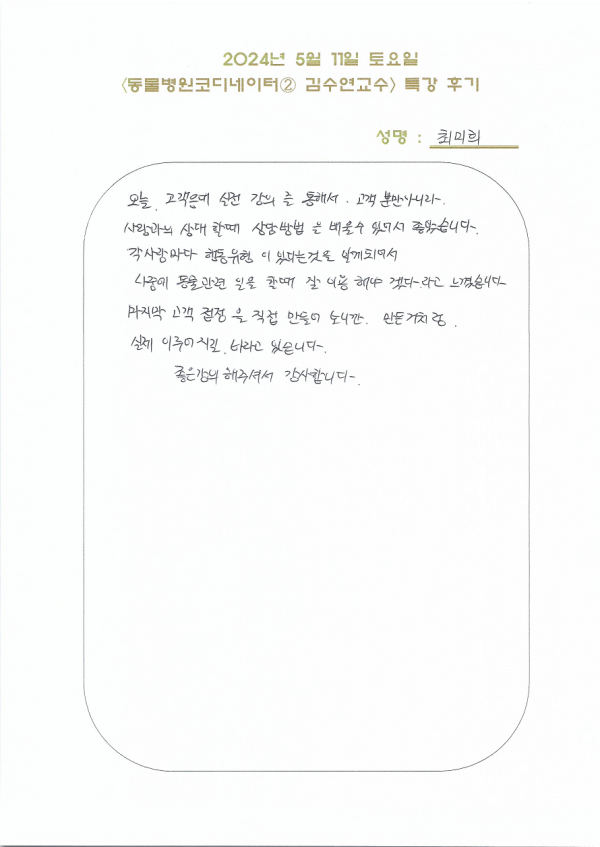 2024년 5월 11일 토요일
<동물병원코디네이터② 김수연교수> 특강 후기
성명 : 최미희
오늘 고객응대 실전 강의 를 통해서. 고객 뿐만아니라.
사람과의 상대 할때 상담방법 을 배울수 있어서 좋았습니다.
각사람마다 행동유형 이 있다는것을 알게되면서
나중에 동물관련 일을 할때 잘 이용 해야 겠다. 라고 느꼈습니다
마지막 고객 접점 을 직접 만들어 보니깐. 만든거처럼.
실제 이루어시길 바라고 있습니다.
좋은강의 해주셔서 감사합니다.